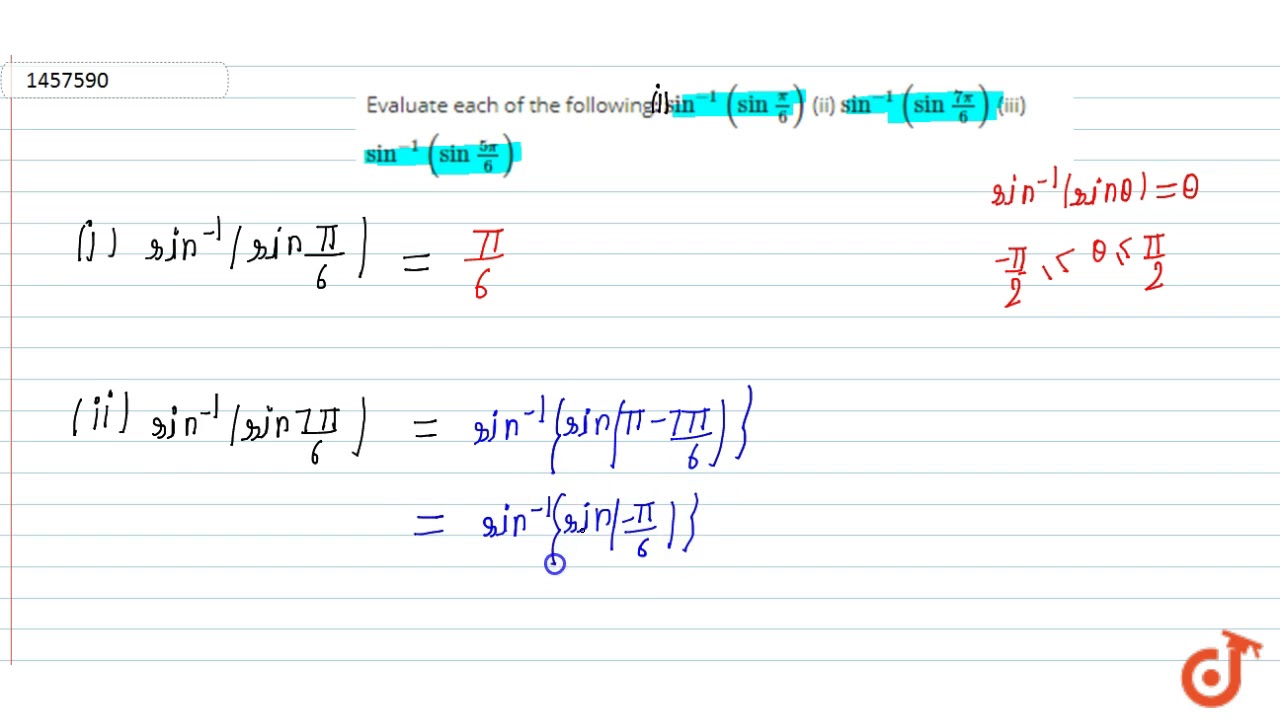 1457590
Evaluate each of the following: (i) sin⁻¹(sin π/6) (ii) sin⁻¹(sin 7π/6) (iii)
sin⁻¹(sin 5π/6)
sin⁻¹(sinθ) = θ
-π/2 ≤ θ ≤ π/2
(i) sin⁻¹(sin π/6) = π/6
(ii) sin⁻¹(sin 7π/6) = sin⁻¹{sin(π - 7π/6)}
= sin⁻¹{sin(-π/6)}